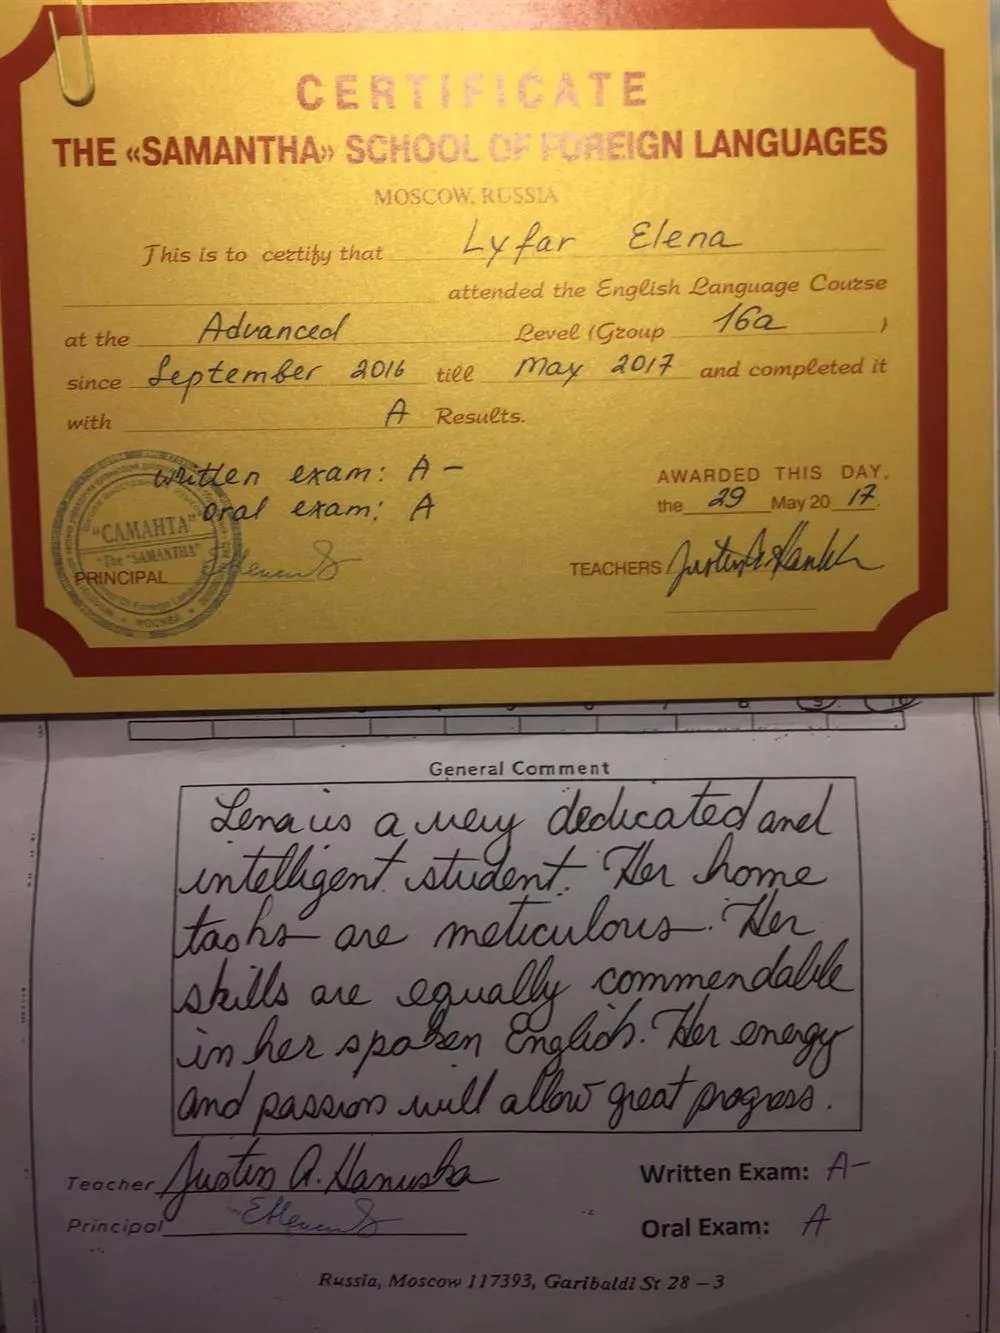 CERTIFICATE
THE «SAMANTHA» SCHOOL OF FOREIGN LANGUAGES
MOSCOW, RUSSIA
This is to certify that Lyfar Elena
attended the English Language Course
at the Advanced Level (Group 16a )
since September 2016 till May 2017 and completed it
with A Results.
written exam: A-
oral exam: A
AWARDED THIS DAY.
the 29 May 20 17.
"САМАНТА"
"The "SAMANTHA"
МОСКВА
PRINCIPAL
TEACHERS Justin A.
General Comment
Lena is a very dedicated and
intelligent student. Her home
tasks are meticulous. Her
skills are equally commendable
in her spoken English. Her energy
and passion will allow great progress.
Teacher Justin A. Hanuska
Principal
Written Exam: A-
Oral Exam: A
Russia, Moscow 117393, Garibaldi St 28 – 3